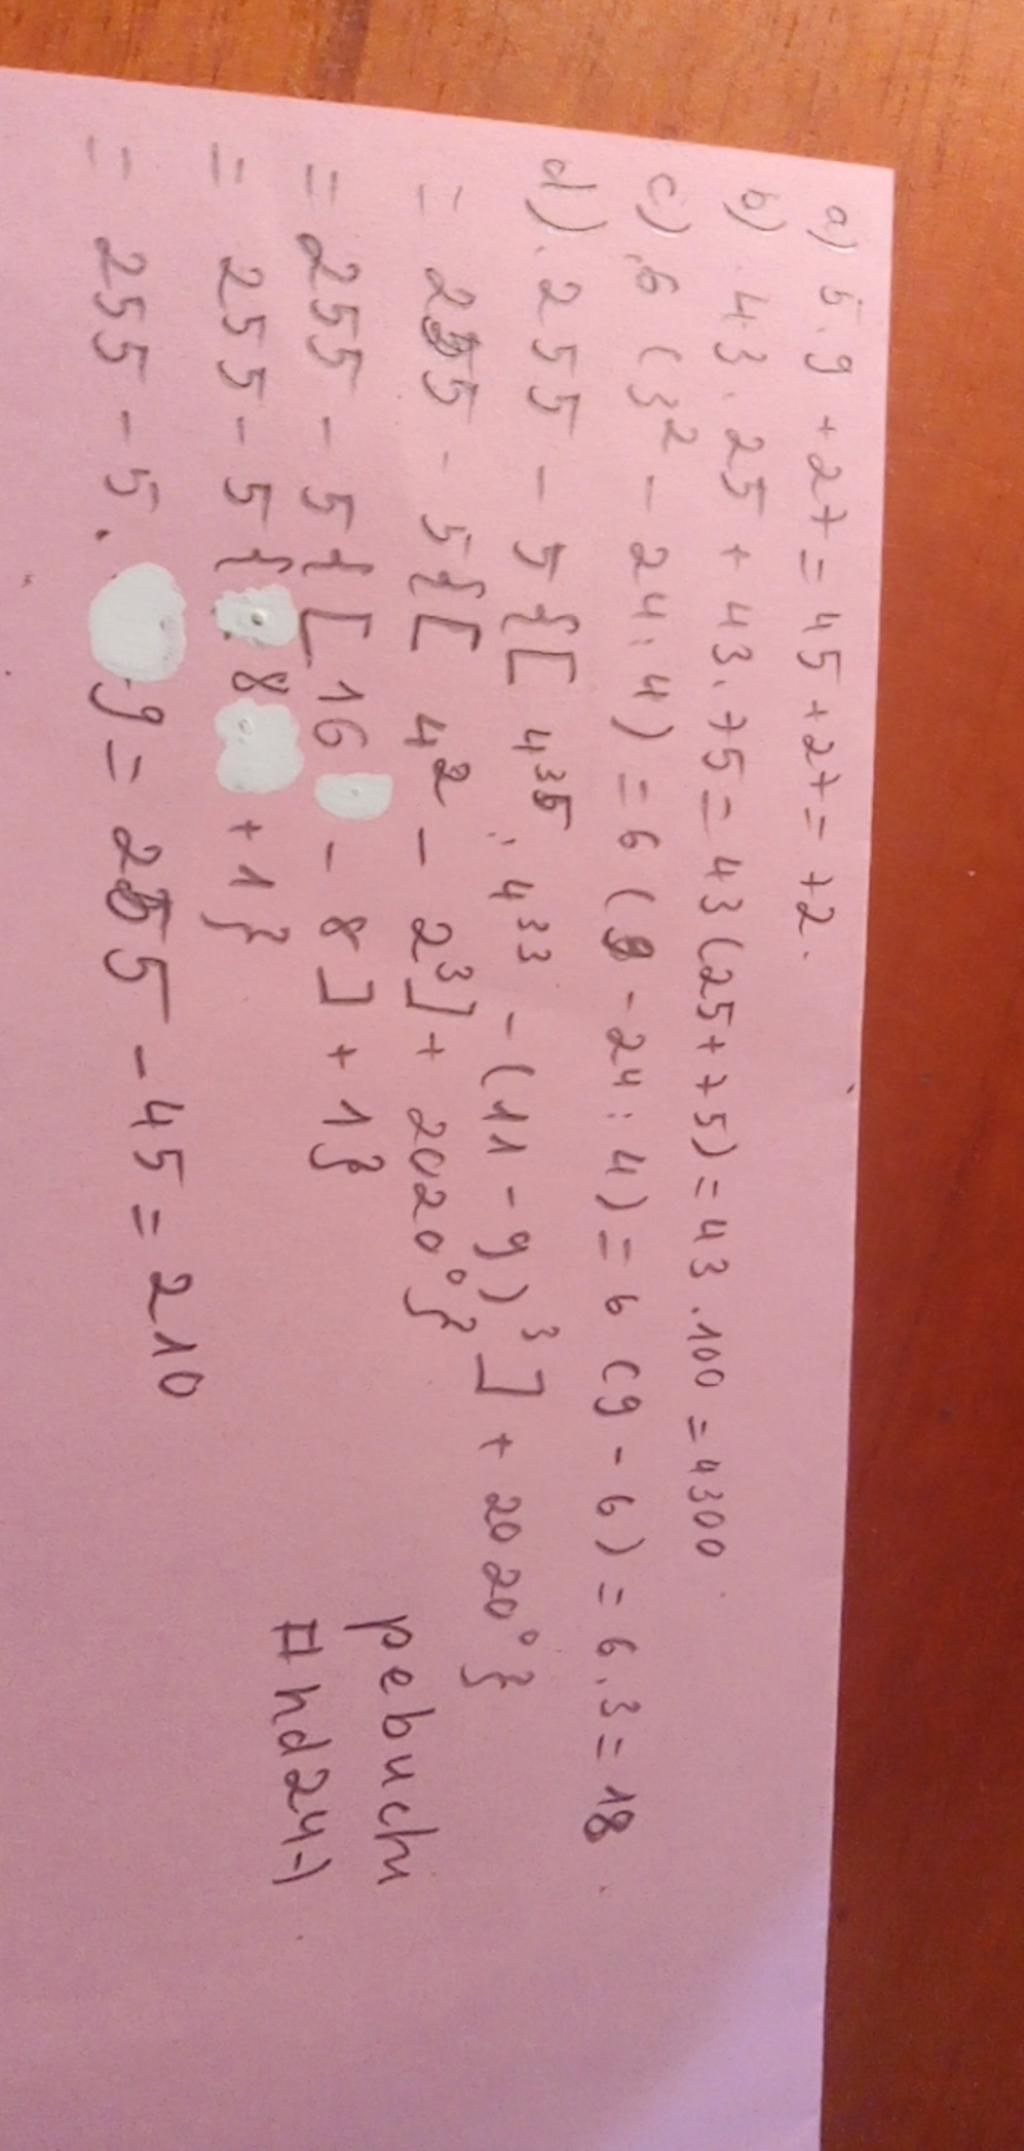 a) 5.9 + 27 = 45 + 27 = 72.
b) 43.25 + 43.75 = 43(25+75) = 43.100 = 4300
c) 6(3² - 24:4) = 6(9 - 24:4) = 6(9 - 6) = 6.3 = 18
d) 255 - 5{[4³⁵ : 4³³ - (11 - 9)³] + 2020⁰}
= 255 - 5{[4² - 2³] + 2020⁰}
= 255 - 5{[16 - 8] + 1}
= 255 - 5{8 + 1}
= 255 - 5.9 = 255 - 45 = 210
pebuchi
#hd247